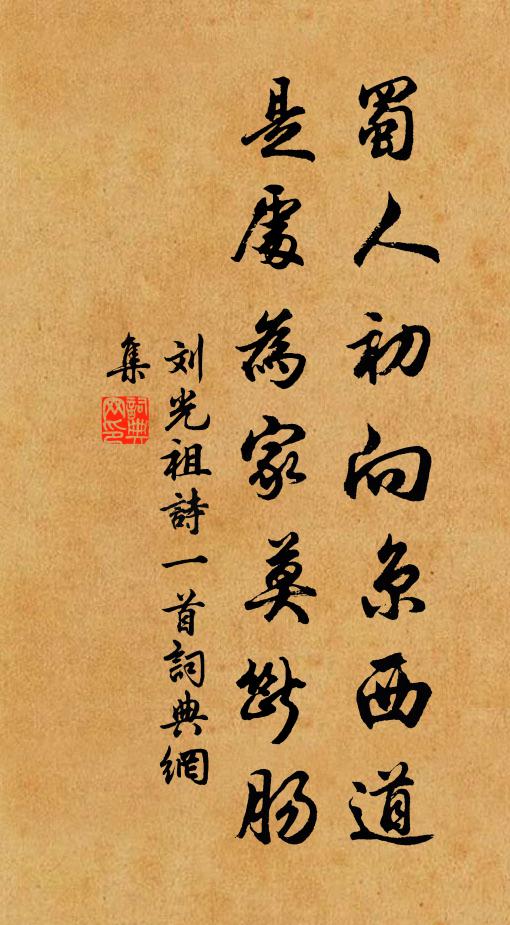 蜀人初向京西道
是處為家莫斷肠
刘光祖詩一首詞典網
集
詞典
网印